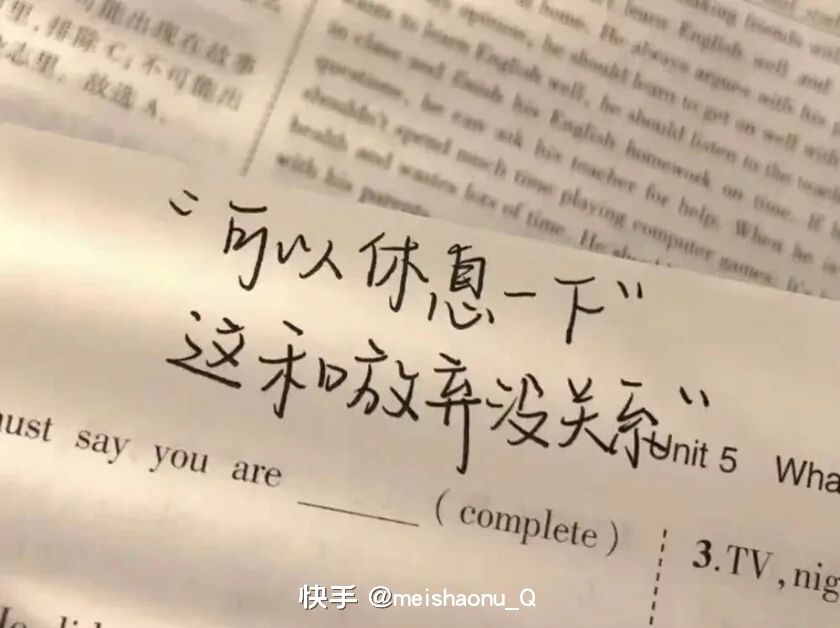 可能出现在故事
里，排除 C；不可能出
志里。故选 A。
learn English well and
at home. He always argues with his
wants to learn English well, he should learn to get on well with
in class and finish his English homework on time. If h
questions, he can ask his teacher for help. When he is
shouldn't spend much time playing computer games. It's
health and wastes lots of time. He
with his parents.
"可以休息一下"
这和放弃没关系"
Unit 5 Wha
must say you are ______ ( complete )
3. TV, nig
快手 @meishaonu_Q